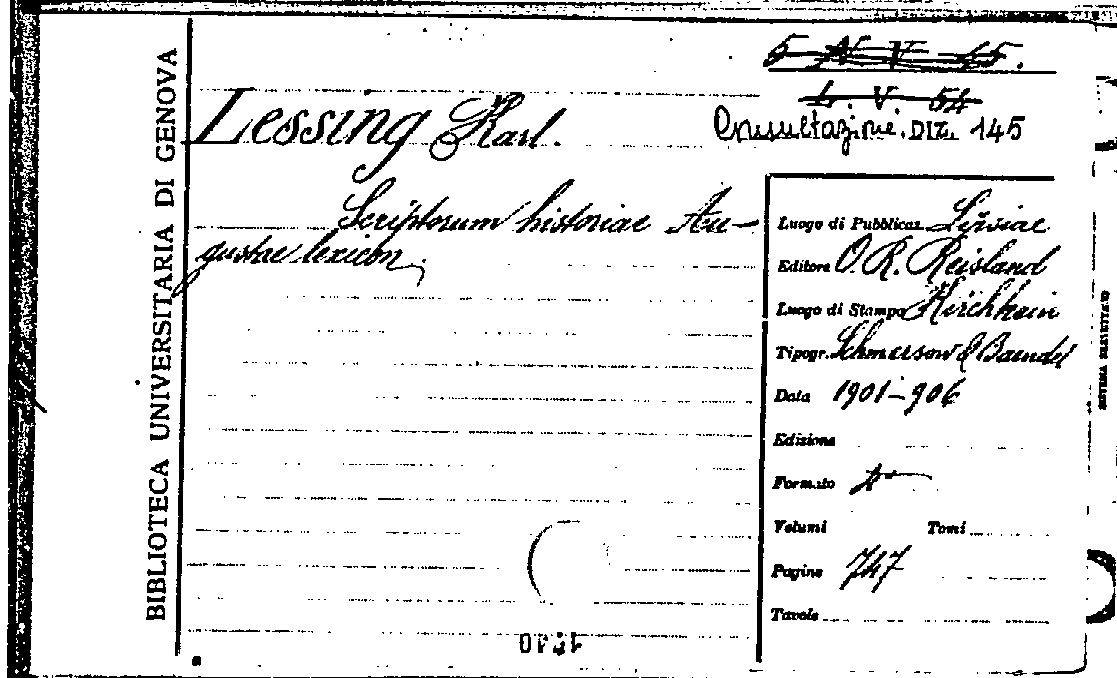 BIBLIOTECA UNIVERSITARIA DI GENOVA
5 N V 45.
L. V. 54
Consultazione. DIZ. 145
Lessing Karl.
Scriptorum historiae Au-
gustae lexicon.
Luogo di Pubblicaz. Lipsiae
Editore O. R. Reisland
Luogo di Stampa Kirchhain
Tipogr. Schmersow & Baendel
Data 1901-906
Edizione
Formato 4°
Volumi Tomi
Pagine 747
Tavole